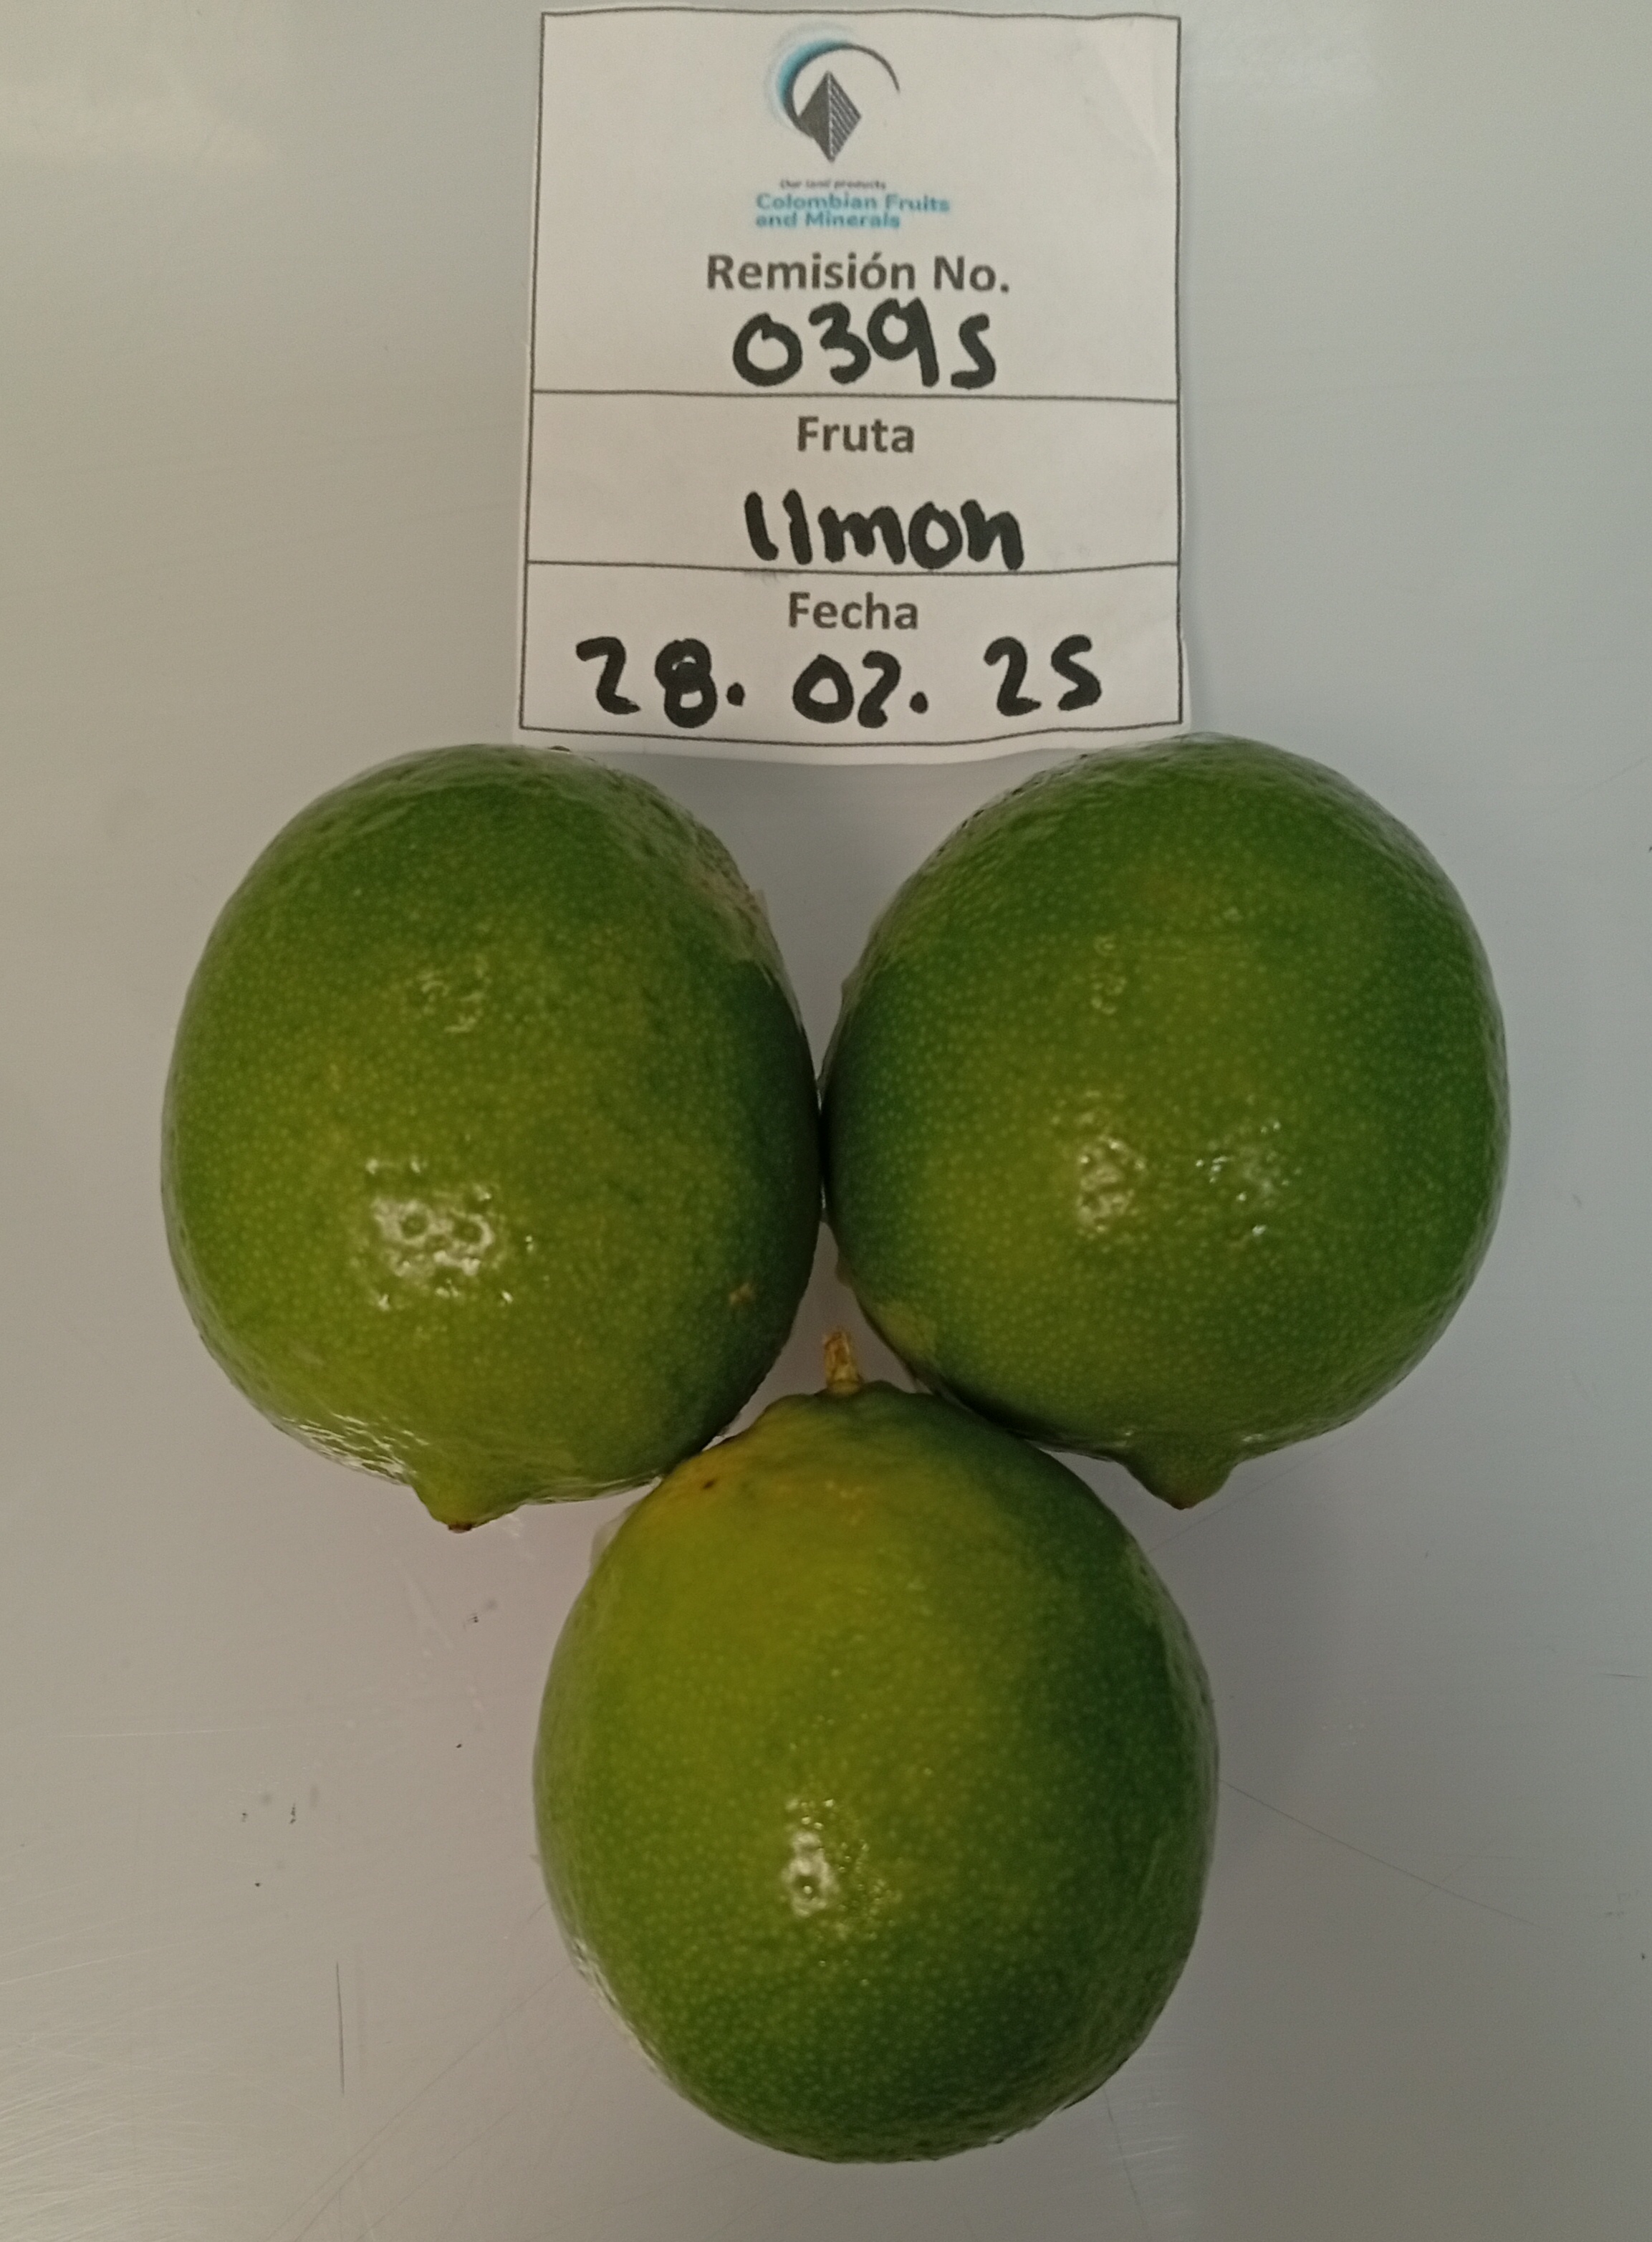 Our land products
Colombian Fruits
and Minerals
Remisión No.
0395
Fruta
limon
Fecha
28. 02. 25